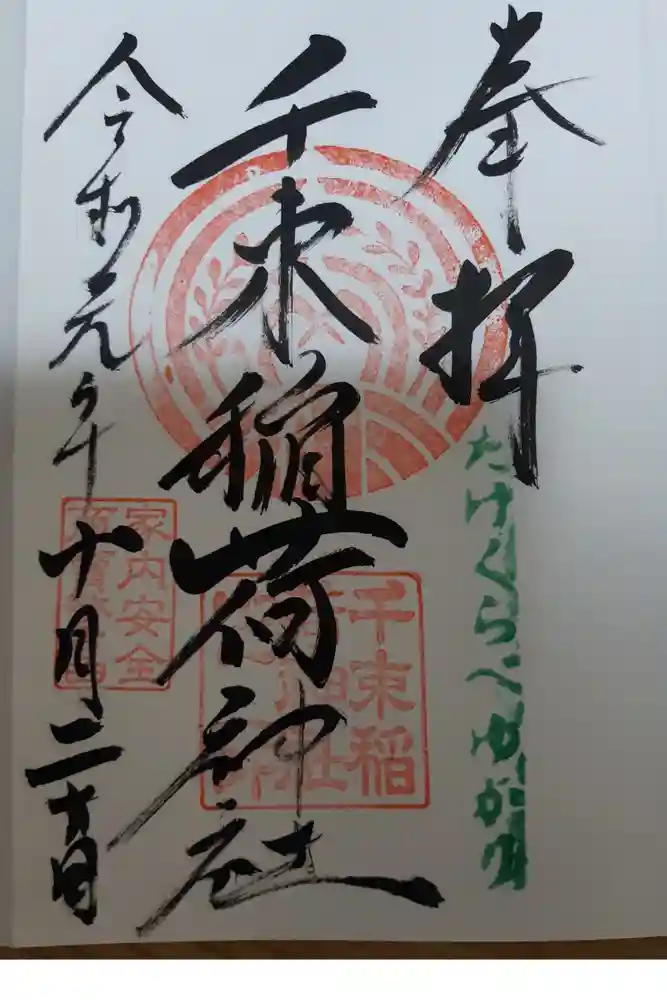 奉拝
たけくらべゆかり
千束稲荷神社
千束稲
荷神社
令和元年十月二十日
家内安全